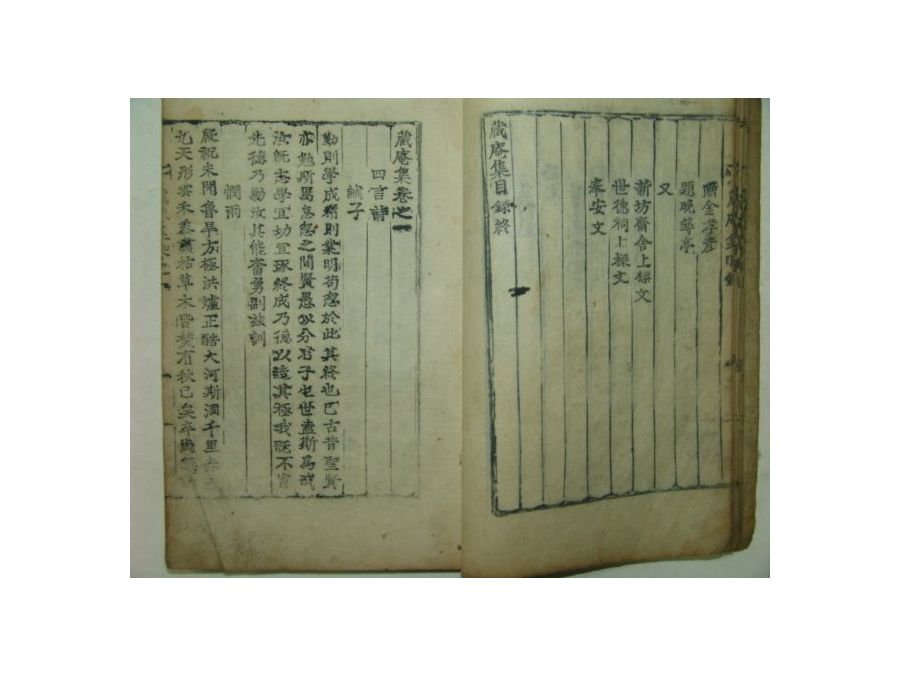 贈金孝彦
題晩翠亭
又
新坊齋舍上樑文
世德祠上樑文
奉安文
葳庵集目錄終
葳庵集卷之一
四言詩
誡子
勤則學成精則業明苟忽於此其終也已古昔聖賢
亦勉斯焉怠忽之間賢愚以分君子之世盍斯爲戒
汝旣志學宜切宜琢終成乃德以造其極我旣不肖
先德乃勗汝其能奮勇副玆訓
憫雨
殷祝未聞魯旱方極洪爐正酷大河斯涸千里赤土
九天彤雲禾黍蕡枯草木偕焚有秋已矣卒歲